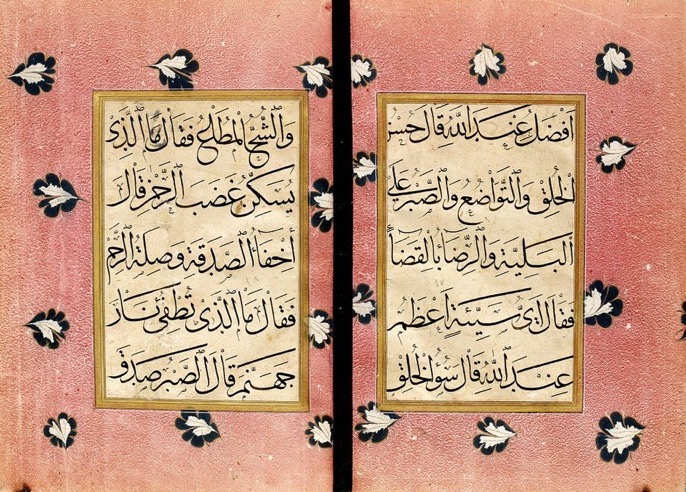 افضل عند الله قال حسن
الخلق والتواضع والصبر علي
البلية والرضا بالقضا
فقال اي سيئة اعظم
عند الله قال سوء الخلق
والشح المطاع فقال ما الذي
يسكن غضب الرحمن قال
اخفاء الصدقة وصلة الرحم
فقال ما الذي تطفي نار
جهنم قال الصبر صدق